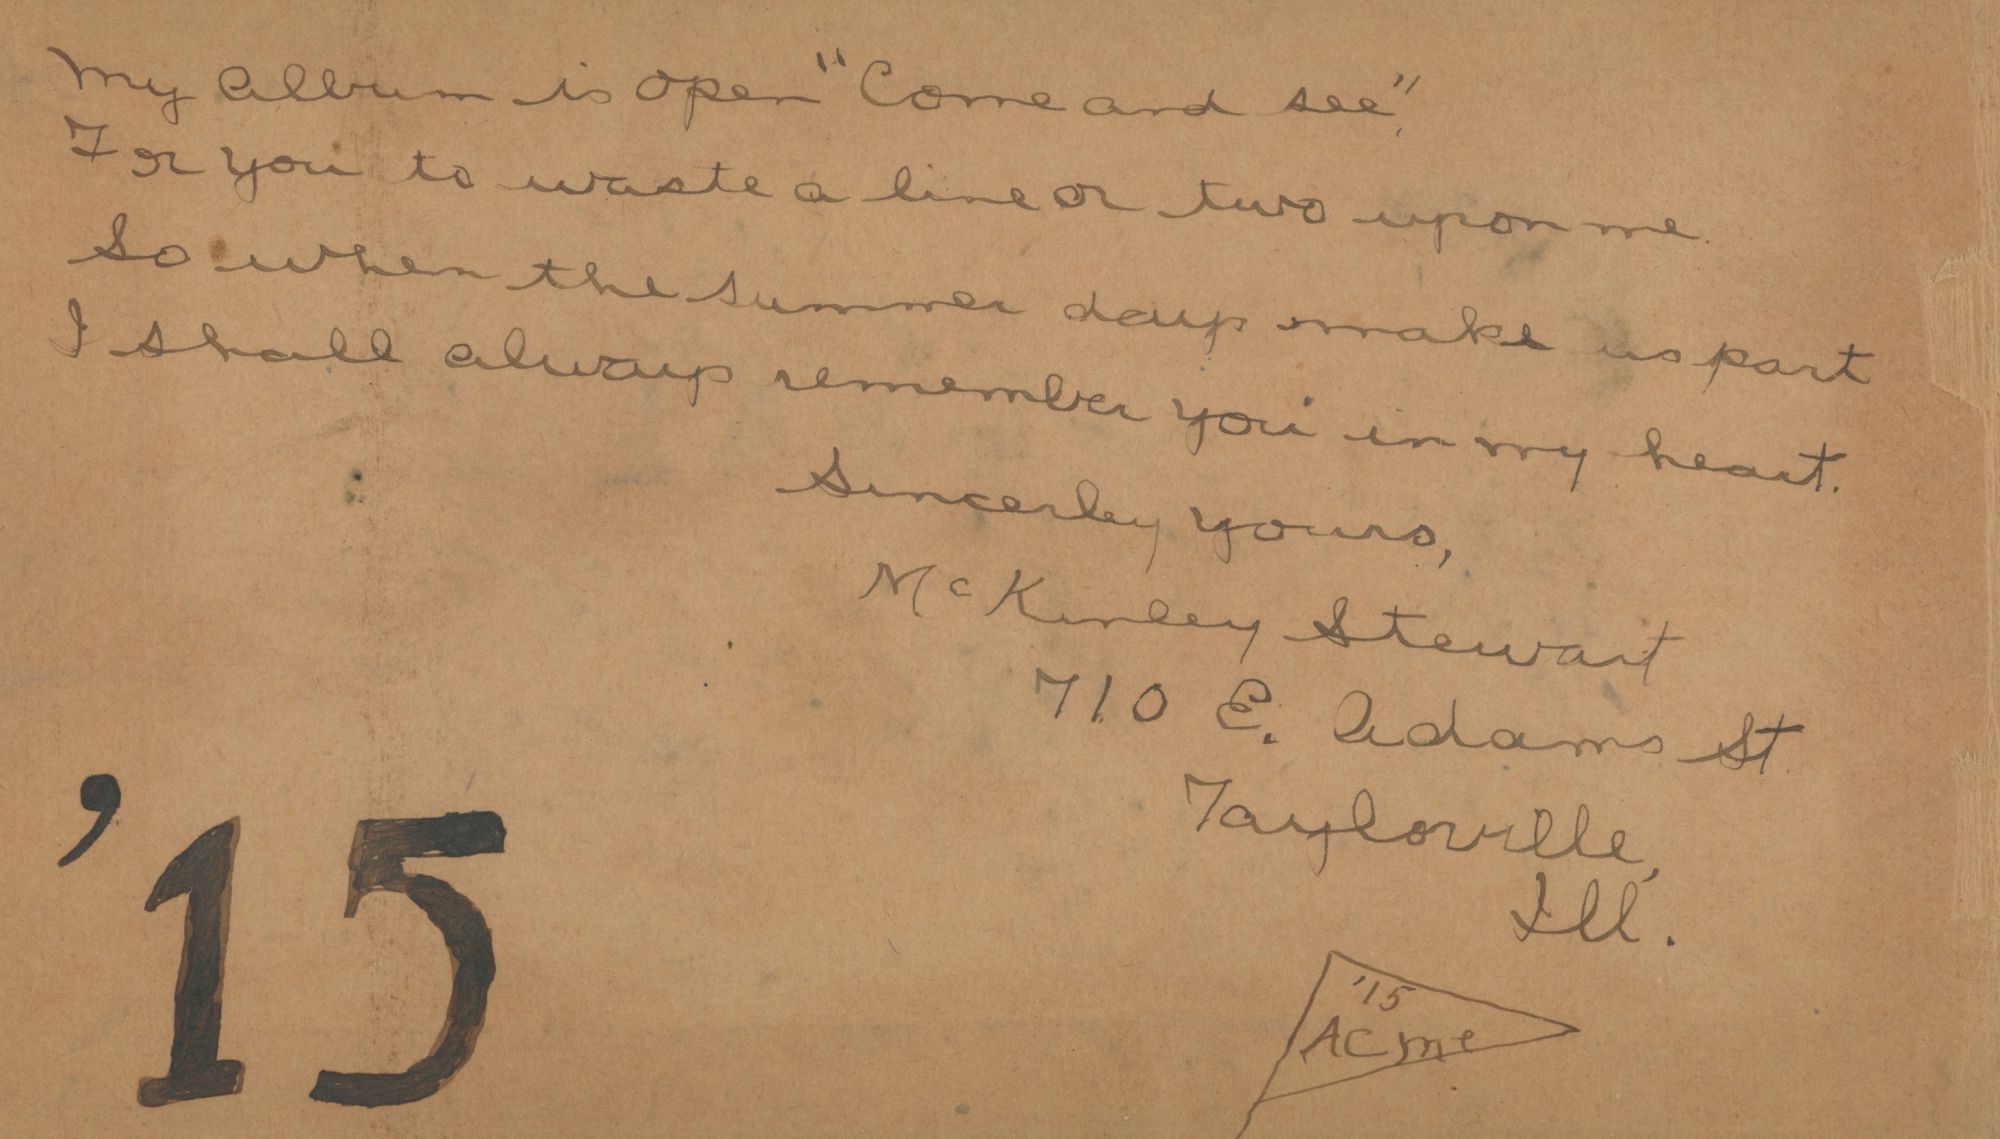 My album is open "Come and see",
For you to waste a line or two upon me
So when the summer days make us part
I shall always remember you in my heart.
Sincerley yours,
McKinley Stewart
710 E. Adams St
Tayloville,
Ill.
'15
'15
Acme